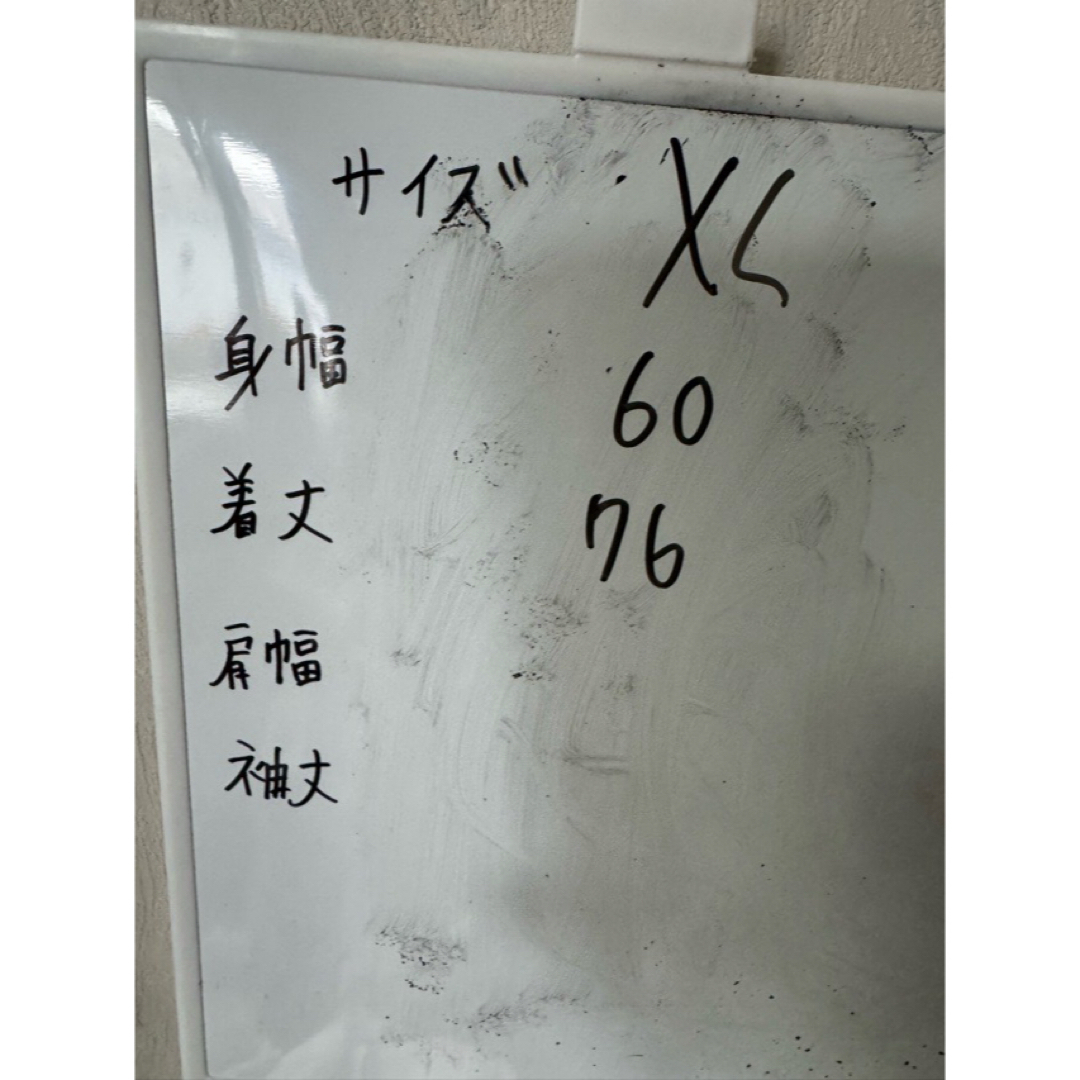 サイズ XL
身幅 60
着丈 76
肩幅
袖丈